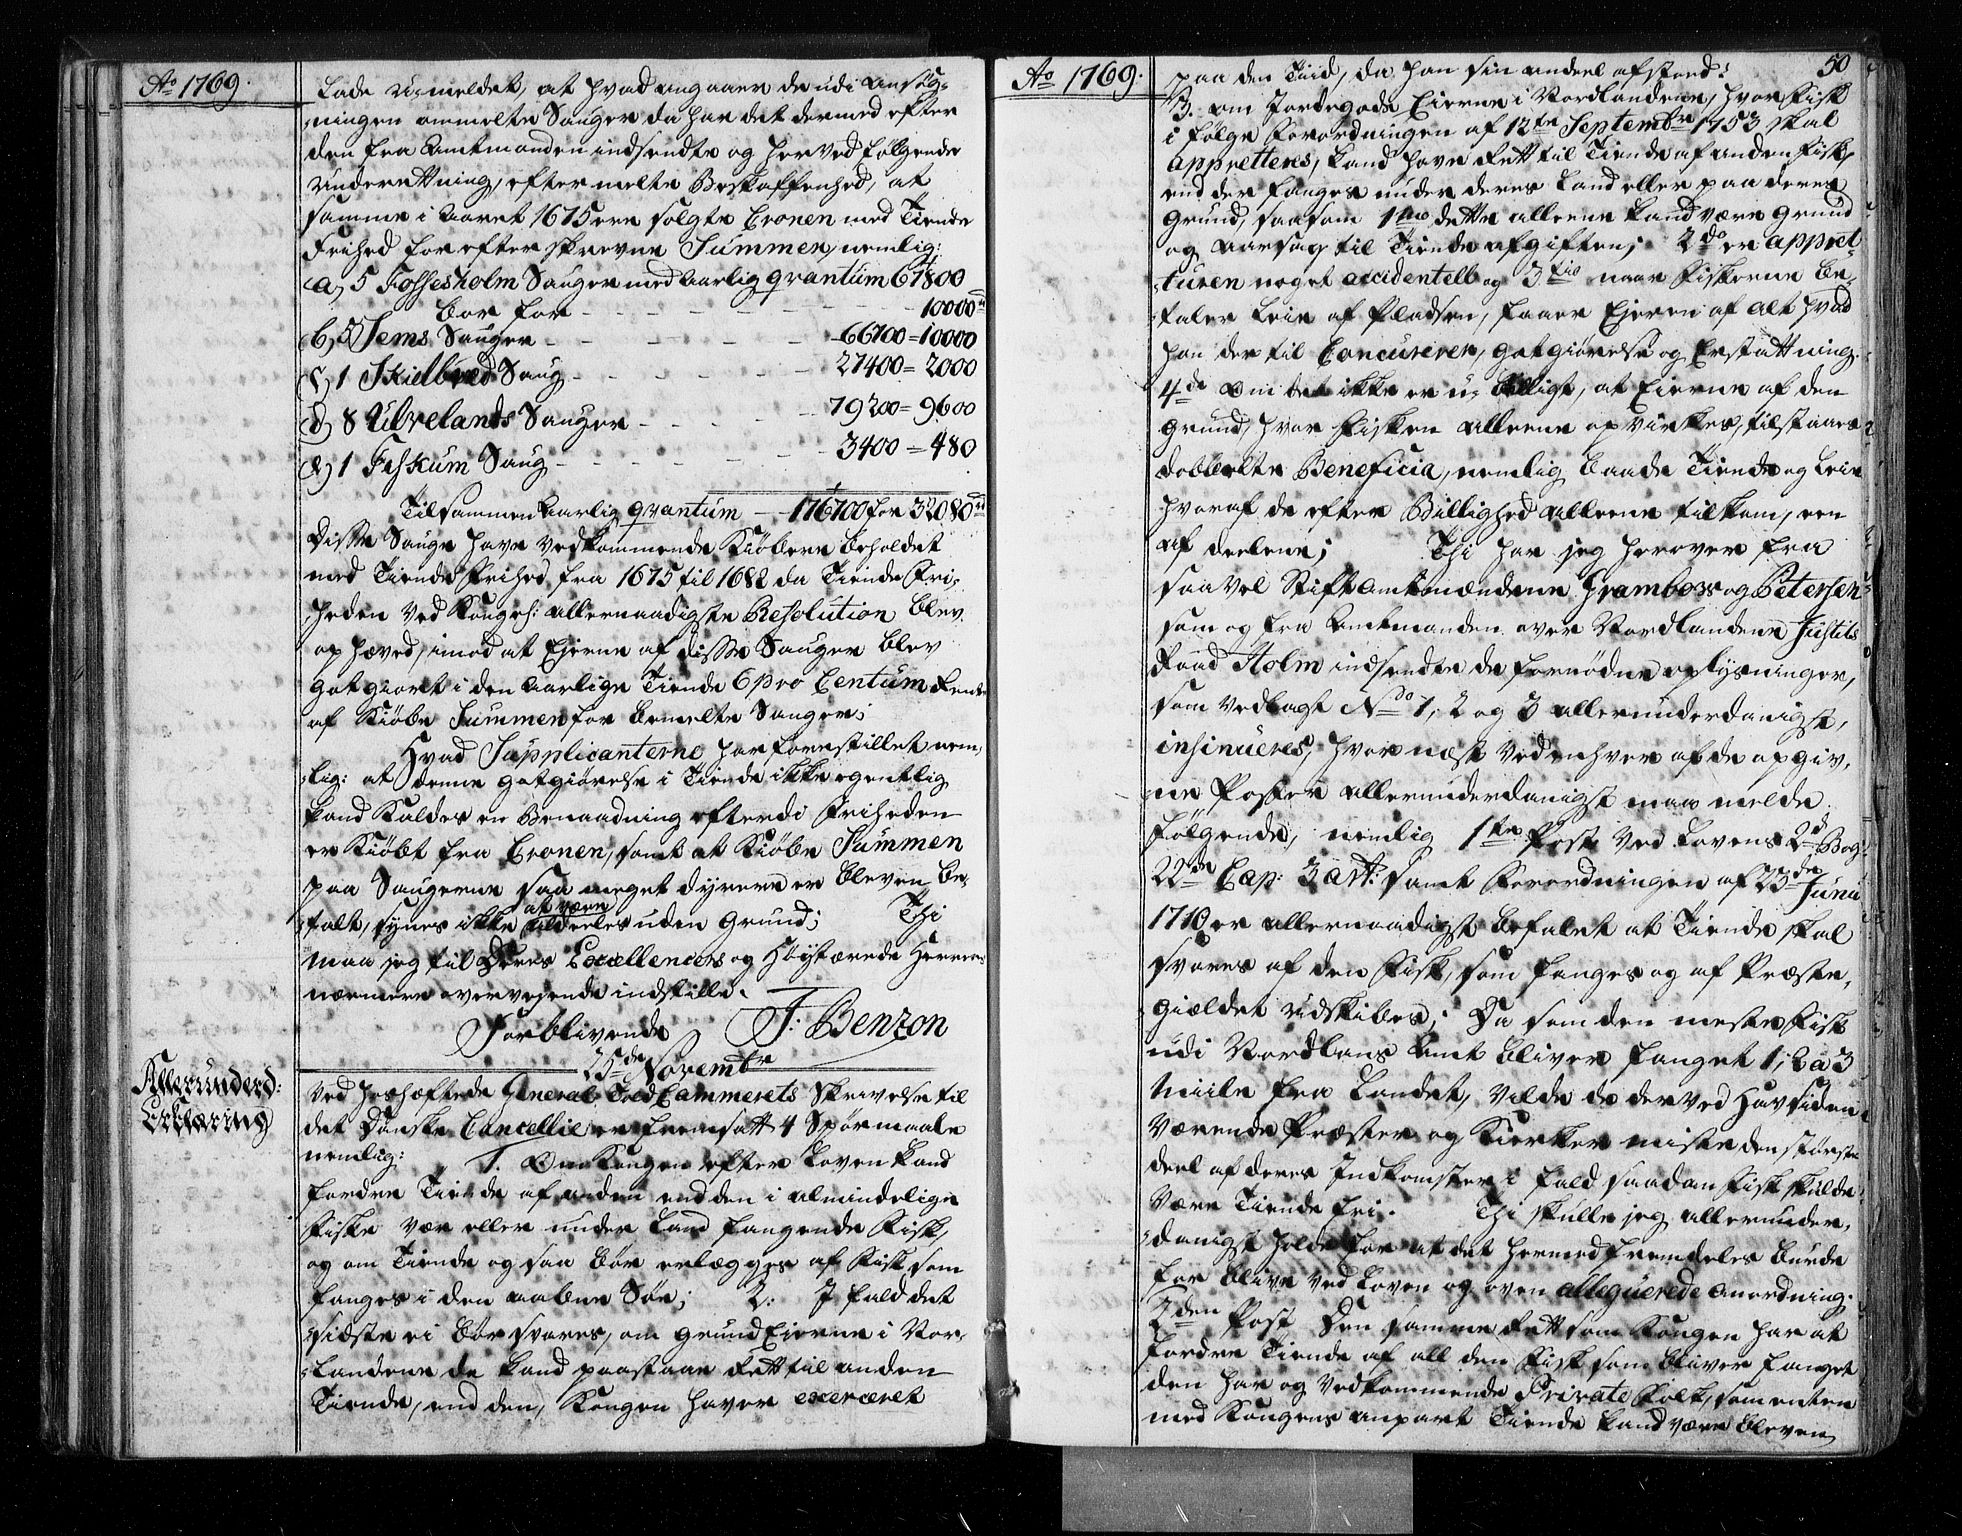 Ao 1769.
Lade u-meldet, at hvad angaaer de udi ansøg-
ningen ommelte Sauger da har det dermed efter
den fra Amtmanden indsendte og herved følgende
Underrettning, eftermelte Beskaffenhed, at
samme i Aaret 1675 ere solgte Cronen med Tiende
Frihed for efterskrevne Summer, nemlig:
a, 5 Fossesholm Sauger med Aarlig qvantum 67800
Bor for - - - - 10000
b, 5 Sems Sauger - - - - 66700 = 10000
c, 1 Skielbred Saug - - - - 27400 = 2000
d, 8 Ulvelands Sauger - - - - 79200 = 9600
e, 1 Fiskum Saug - - - - 3400 = 480
Tilsammen Aarlig qvantum - 176700 for 32080
Disse Sauge have vedkommende Kiøbere beholdet
med Tiende Frihed fra 1675 til 1682 da Tiende Fri-
heden ved Kongel: allernaadigste Resolution blev
ophæved, imod at Ejerne af disse Sauger blev
gotgiort i den Aarlige Tiende 6 pro Centum Rente
af Kiøbe Summen for bemelte Sauger;
Hvad Supplicanterne har forestillet nem-
lig: at denne gotgiørelse i Tiende ikke egentlig
kand kaldes en Benaadning efterdi Friheden
er Kiøbt fra Cronen, samt at Kiøbe Summen
paa Saugerne saa meget dyrere er bleven be-
at være
talt, synes ikke aldeeles uden Grund; Thi
maa jeg til Deres Excellencers og Høystærede Herrers
nærmere overvejende indstille.
Forblivende J: Benzon
25de Novembr
Allerunderd:
Erklæring
Ved hoshæftede General Told Cammerets Skrivelse til
det Danske Cancellie er fremsatt 4 Spørmaale
nemlig: 1. Om Kongen efter Loven kand
fordre Tiende af anden end den i almindelige
Fiske Vær eller under Land fangende Fisk,
og om Tiende og saa bør erlægges af Fisk som
fanges i den aabne Søe; 2: I fald det
sidste ei bør svares, om grund Eierne i Nor-
landene da kand paastaae Rett til anden
Tiende, end den, Kongen haver exerceret
Ao 1769.
50
paa den Tiid, da han sin andeel afstoed:
3. om Jordegods Eierne i Nordlandene, hvor Fisk
i følge Forordningen af 12te Septembr 1753 skal
appretteres, kand have Rett til Tiende af anden Fisk,
end der fanges under deres Land eller paa deres
Grund, saasom 1mo dette alleene kand være Grund
og Aarsag til Tiende afgiften; 2do er appret-
turen noget accidentelt og 3tio naar Fiskerne be-
taler Leie af Pladsen, faaer Ejeren af alt hvad
han der til Concurerer, gotgiørelse og Erstattning.
4de Om det ikke er u-billigt, at Eierne af den
Grund, hvor Fisken alleene opvirkes, tilstaaes
dobbelte Beneficia, nemlig baade Tiende og Leie
hvoraf de efter Billighed alleene tilkom, een
af deelene; Thi har jeg herover fra
saavel Stiftamtmændene Grambow og Petersen
som og fra Amtmanden over Nordlandene Justits
Raad Holm indsendte de fornødne oplysninger,
som vedlagt No 1, 2 og 3 allerunderdanigst,
insinueres, hvor næst ved enhver af de opgiv-
ne Poster allerunderdanigst maa melde
følgende, nemlig 1te Post Ved Lovens 2d Bog
22de Cap: 3 art: samt Forordningen af 23de Junii
1710 er allernaadigst befalet at Tiende skal
svares af den Fisk, som fanges og af Præste-
gieldet udskibes; Da som den meste Fisk
udi Nordlans Amt bliver fanget 1, 2 a 3
Miile fra Landet, vilde de der ved Havsiden
værende Præster og Kierker miste den største
deel af deres Indkomster i fald saadan Fisk skulde
være Tiende fri. Thi skulle jeg allerunder-
danigst holde for at det hermed fremdeles burde
for blive ved Loven og oven alleguerede anordning.
2den Post Den samme Rett som Kongen har at
fordre Tiende af all den Fisk som bliver fanget
den har og vedkommende Private Folk, som enten
med Kongens anpart Tiende kand være bleven